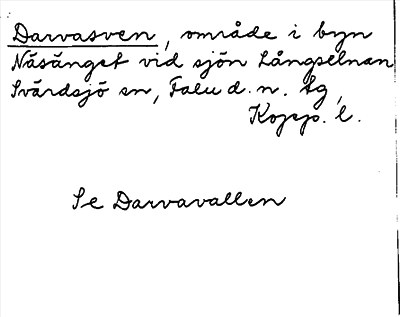 Darvasven, område i byn
Näsänget vid sjön Långselnan
Svärdsjö sn, Falu d. n. tg,
Kopp. l.
Se Darvavallen